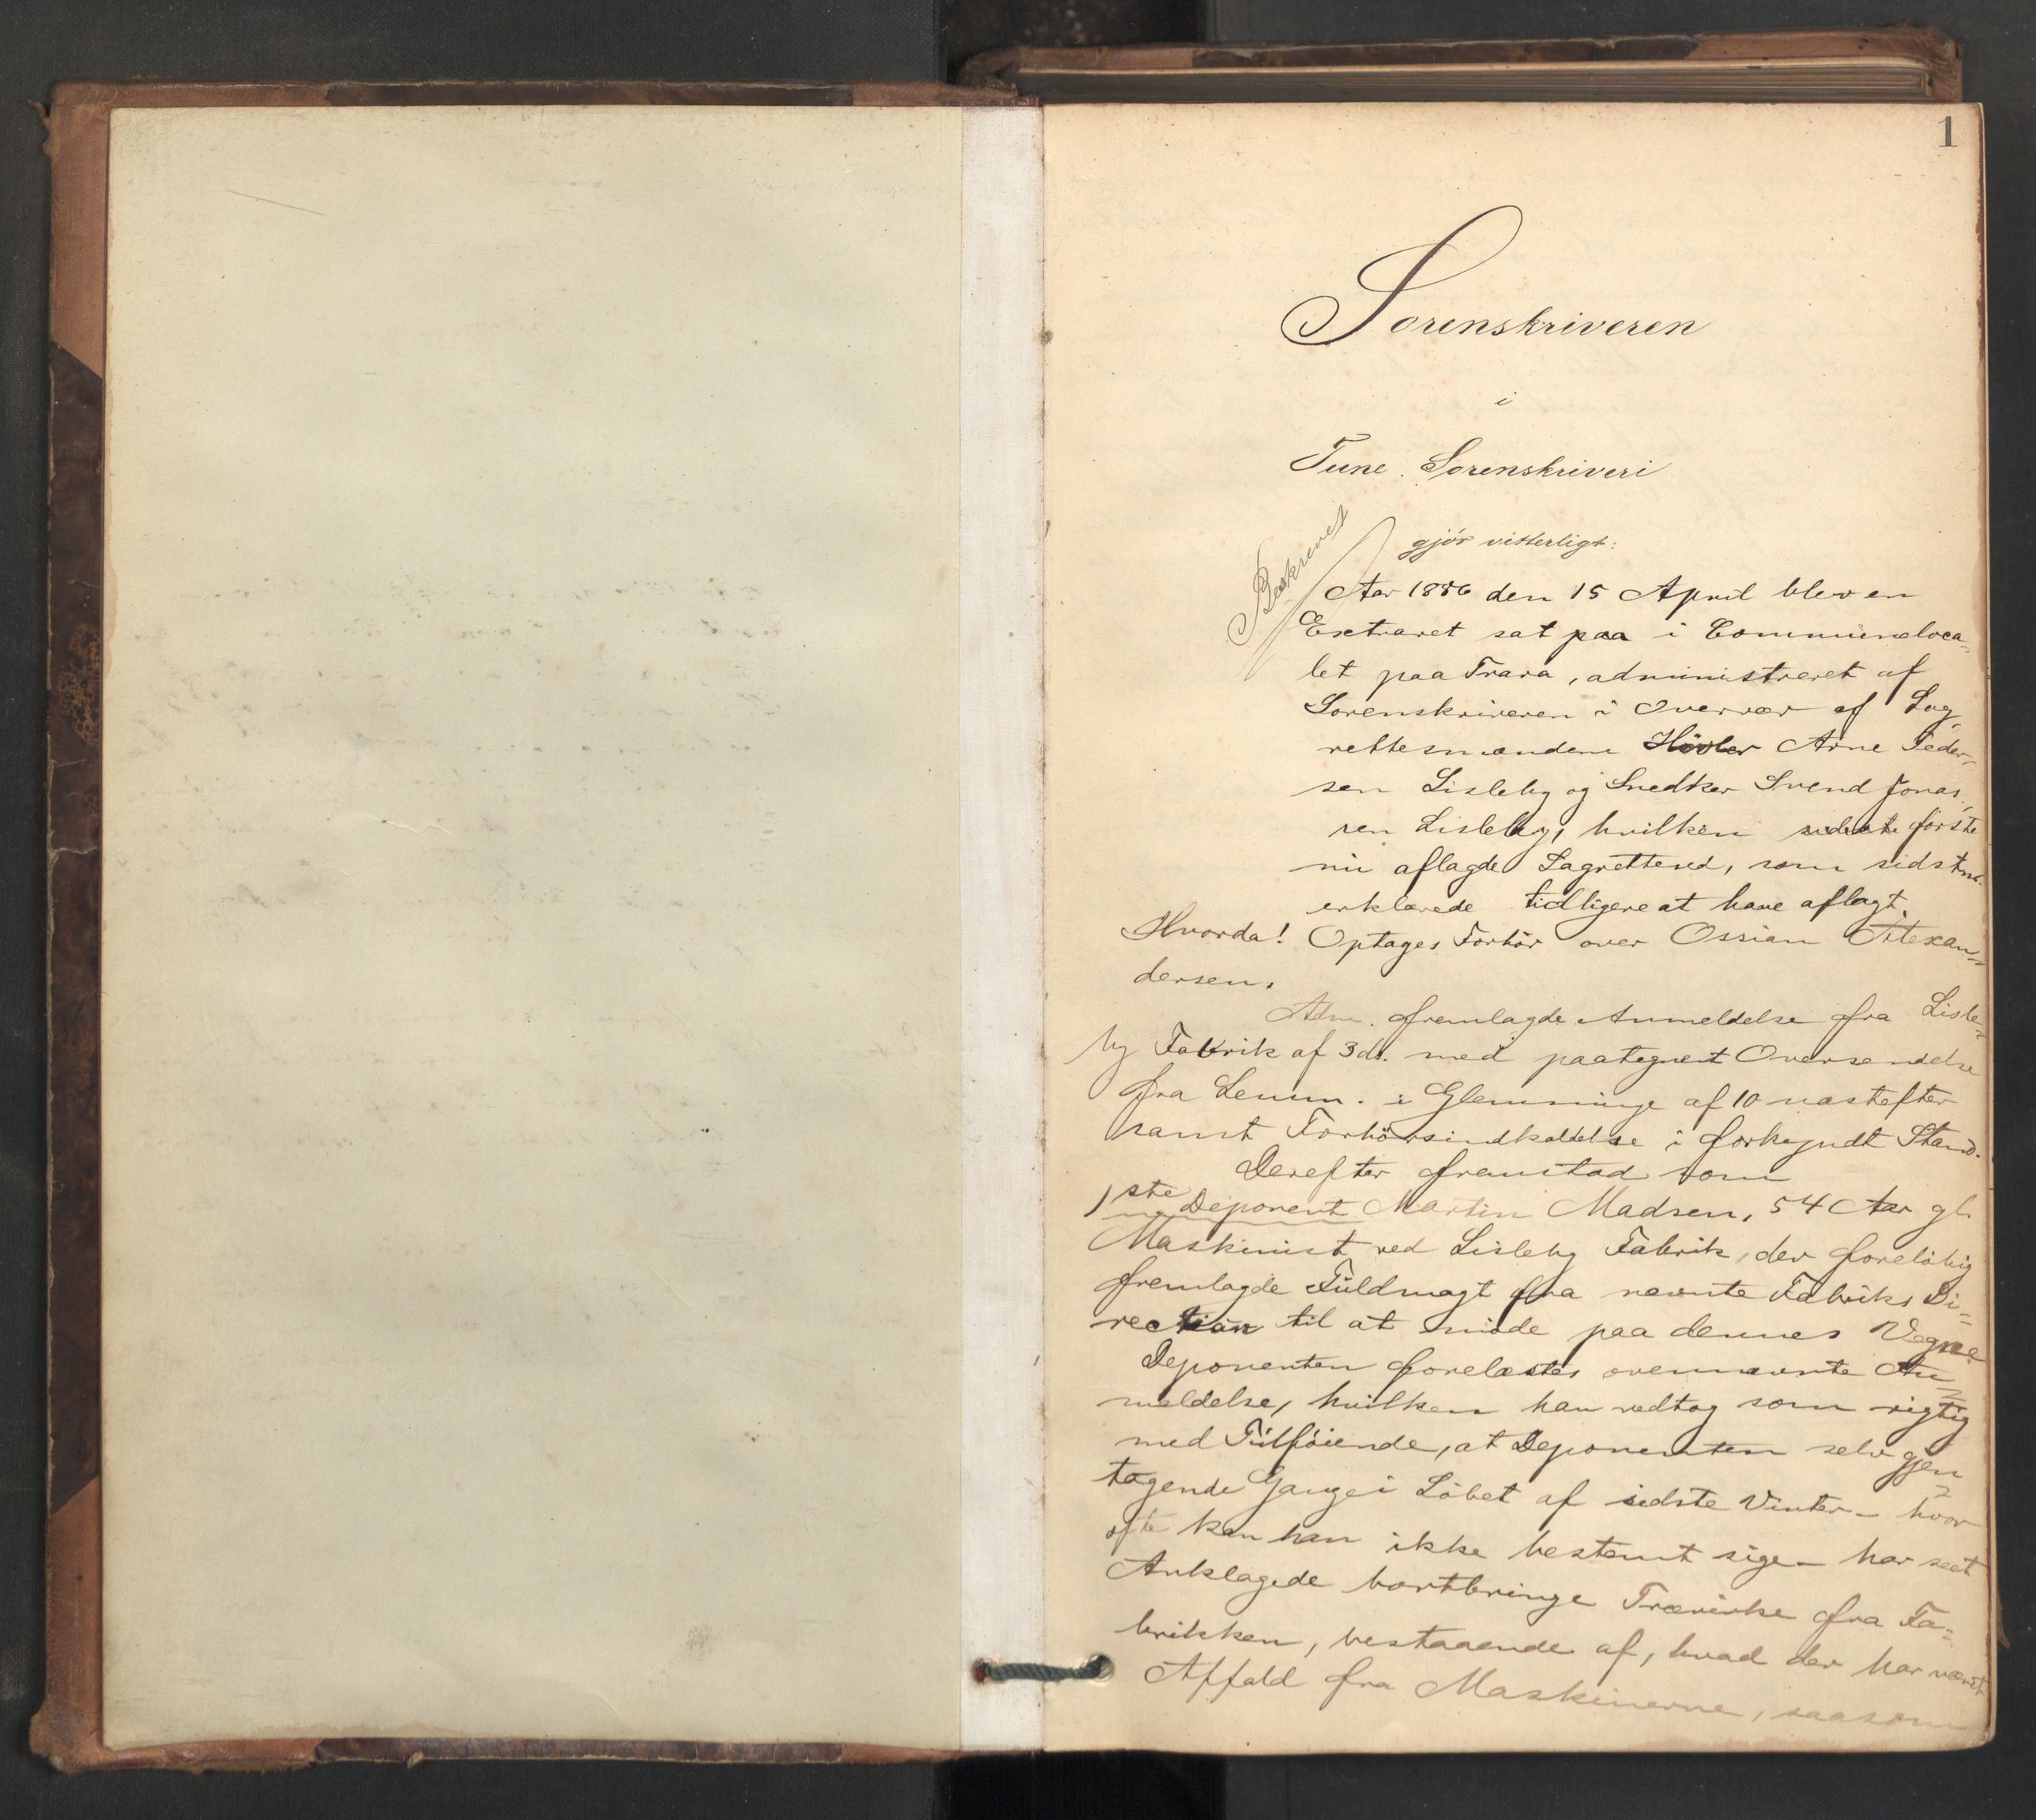 1
Sorenskriveren
i
Tune Sorenskriveri
gjör vitterligt:
Beskrevet
Aar 1886 den 15 April blev en
Extraret sat paa i Communeloca-
let paa Trara, administreret af
Sorenskriveren i Overvær af Lag-
rettesmændene Hövler Arne Peder-
sen Lisleby og Snedker Svend Jonas-
sen Lisleby, hvilken sidste förste
nu aflagde Lagretteed, som sidstn.
erklærede tidligere at have aflagt.
Hvorda! Optages Forhör over Ossian Alexan-
dersen.
Adm. fremlagde Anmeldelse fra Lisle-
by Fabrik af 3 ds. med paategnet Oversendelse
fra Lensm. i Glemminge af 10 næstefter
samt Forhörsindkaldelse i forkyndt Stand.
Derefter fremstod som
1ste Deponent Martin Madsen, 54 Aar gl.
Maskinist ved Lisleby Fabrik, der forelöbig
fremlagde Fuldmagt fra nævnte Fabriks Di-
rection til at möde paa dennes Vegne
Deponenten forelæstes ovennævnte An-
meldelse, hvilken han vedtog som rigtig
med Tilföiende, at Deponenten selv gjen-
tagende Gange i Löbet af sidste Vinter - hvor
ofte kan han ikke bestemt sige - har seet
Anklagede bortbringe Trævirke fra Fa-
brikken, bestaaende af, hvad der har været
Affald fra Maskinerne, saasom